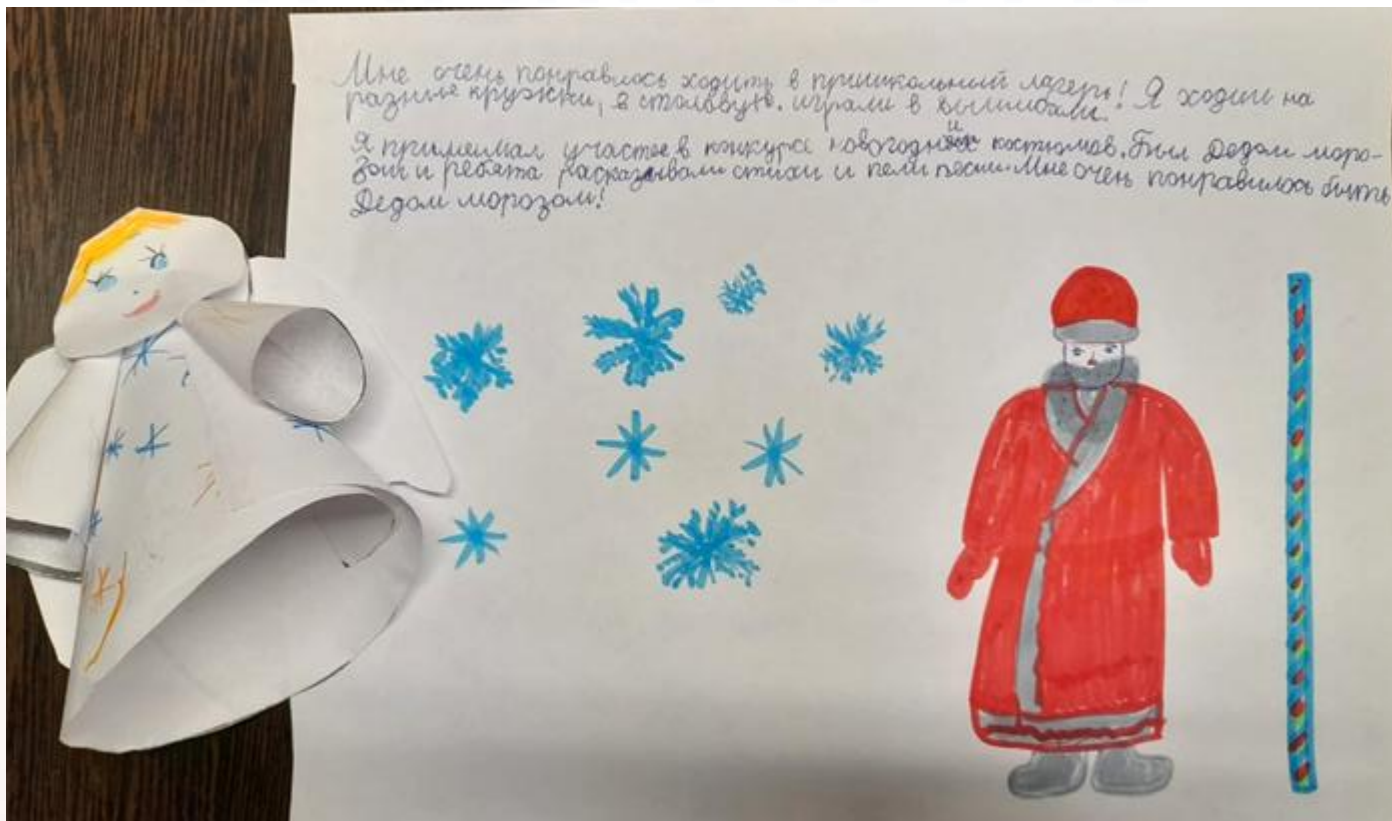 Мне очень понравлось ходить в пришкольний лагерь! Я ходил на
разные кружки, в столовую. играли в вышибали.
Я принимал участее в конкурсе новогодних костюмов. Был Дедом моро-
зом и ребята расказывали стихи и пели песни. Мне очень понравилось быть
Дедом морозом!